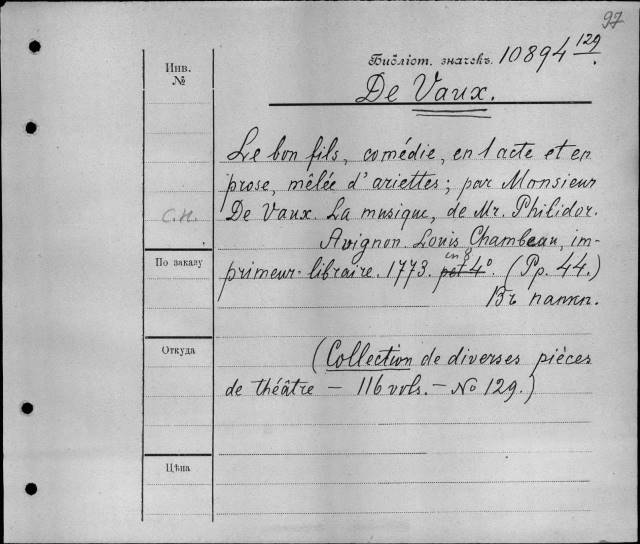 97
Библіот. значекъ 10894 129
Инв.
№
De Vaux.
Le bon fils, comédie, en 1 acte et en
prose, mêlée d'ariettes; par Monsieur
C.H. De Vaux. La musique, de Mr. Philidor.
Avignon. Louis Chambeau, im-
По заказу
primeur-libraire. 1773. in 8 pet 4°. (Pp. 44.)
Въ папп.
Откуда
(Collection de diverses pièces
de théâtre — 116 vols. — No 129.)
Цѣна